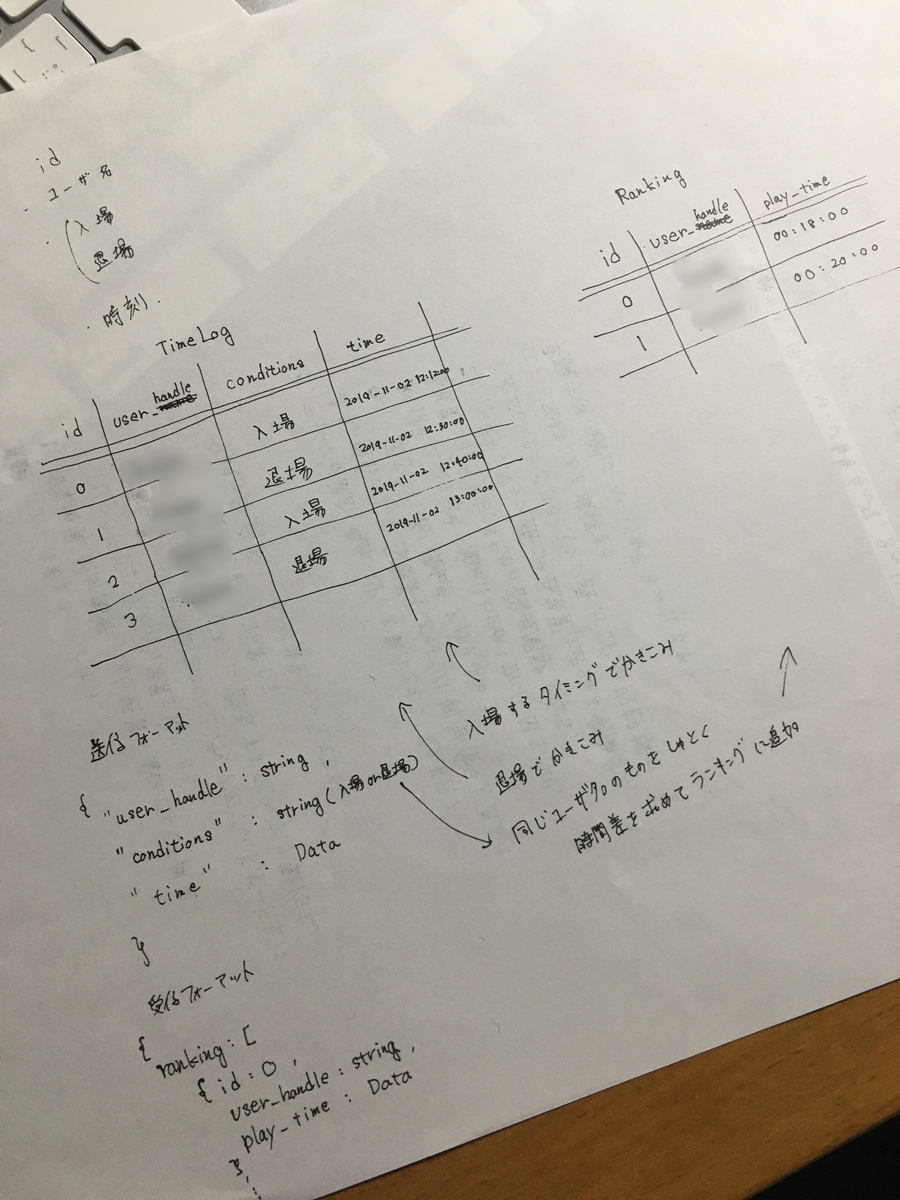 id
・ユーザ名
・(入場
退場
・時刻.
TimeLog
id user_handle conditions time
0 入場 2019-11-02 12:12:00
1 退場 2019-11-02 12:30:00
2 入場 2019-11-02 12:40:00
3 退場 2019-11-02 13:00:00
Ranking
id user_handle play_time
0 00:18:00
1 00:20:00
入場するタイミングでかきこみ
退場でかきこみ
同じユーザ名のものをしゅとく
時間差を求めてランキングに追加
送信フォーマット
{ "user_handle" : string,
"conditions" : string(入場or退場)
"time" : Data
}
受信フォーマット
{ ranking: [
{ id : 0,
user_handle : string,
play_time : Data
},
⋮